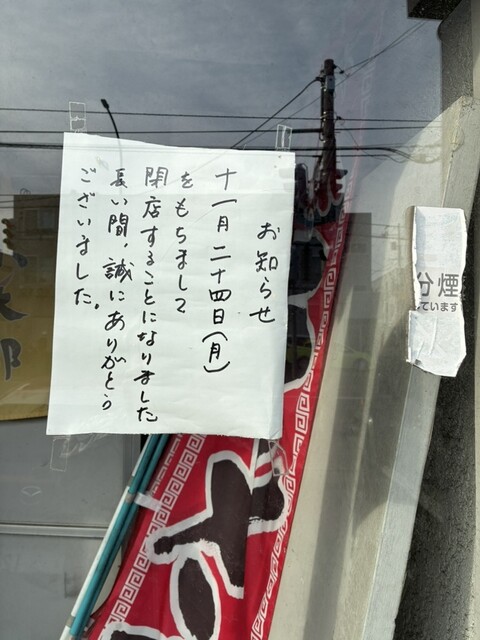 お知らせ
十一月二十四日(月)
をもちまして
閉店することになりました
長い間、誠にありがとう
ございました。
分煙
ています